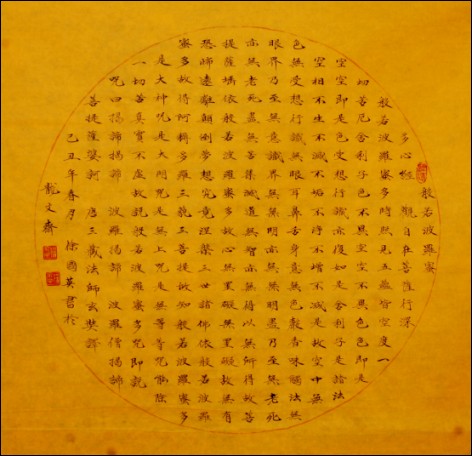 般若波羅蜜
多心經 觀自在菩薩行深
般若波羅蜜多時照見五蘊皆空度一
切苦厄舍利子色不異空空不異色色即是
空空即是色受想行識亦復如是舍利子是諸法
空相不生不滅不垢不淨不增不減是故空中無
色無受想行識無眼耳鼻舌身意無色聲香味觸法無
眼界乃至無意識界無無明亦無無明盡乃至無老死
亦無老死盡無苦集滅道無智亦無得以無所得故菩
提薩埵依般若波羅蜜多故心無罣礙無罣礙故無有
恐怖遠離顛倒夢想究竟涅槃三世諸佛依般若波羅
蜜多故得阿耨多羅三藐三菩提故知般若波羅蜜多
是大神咒是大明咒是無上咒是無等等咒能除
一切苦真實不虛故說般若波羅蜜多咒即說
咒曰揭諦揭諦 波羅揭諦 波羅僧揭諦
菩提薩婆訶 唐三藏法師玄奘譯
己丑年春月 徐國英書於
文齋